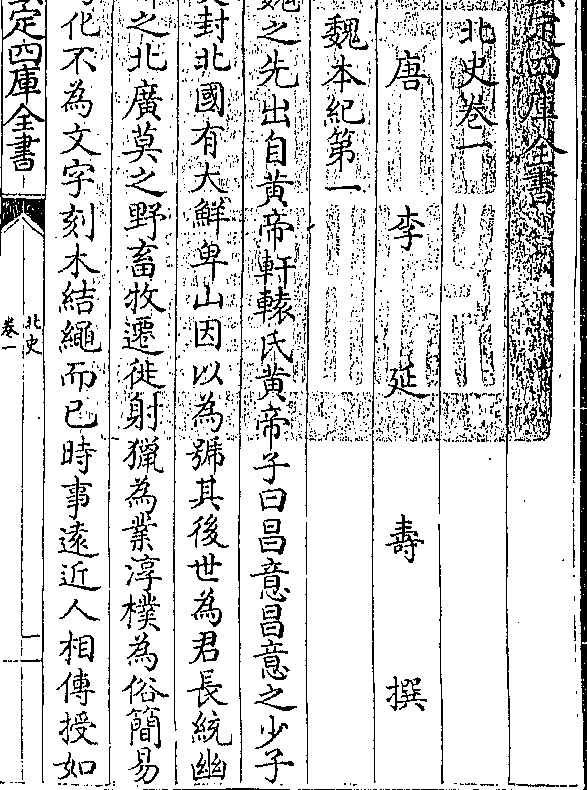 定四庫全書
北史卷一
唐 李 延 壽 撰
魏本紀第一
魏之先出自黄帝軒轅氏黄帝子曰昌意昌意之少子
封北國有大鮮卑山因以為號其後世為君長統幽
之北廣莫之野畜牧遷徙射獵為業淳樸為俗簡易
化不為文字刻木結繩而已時事遠近人相傳授如
定四庫全書
北史
卷一